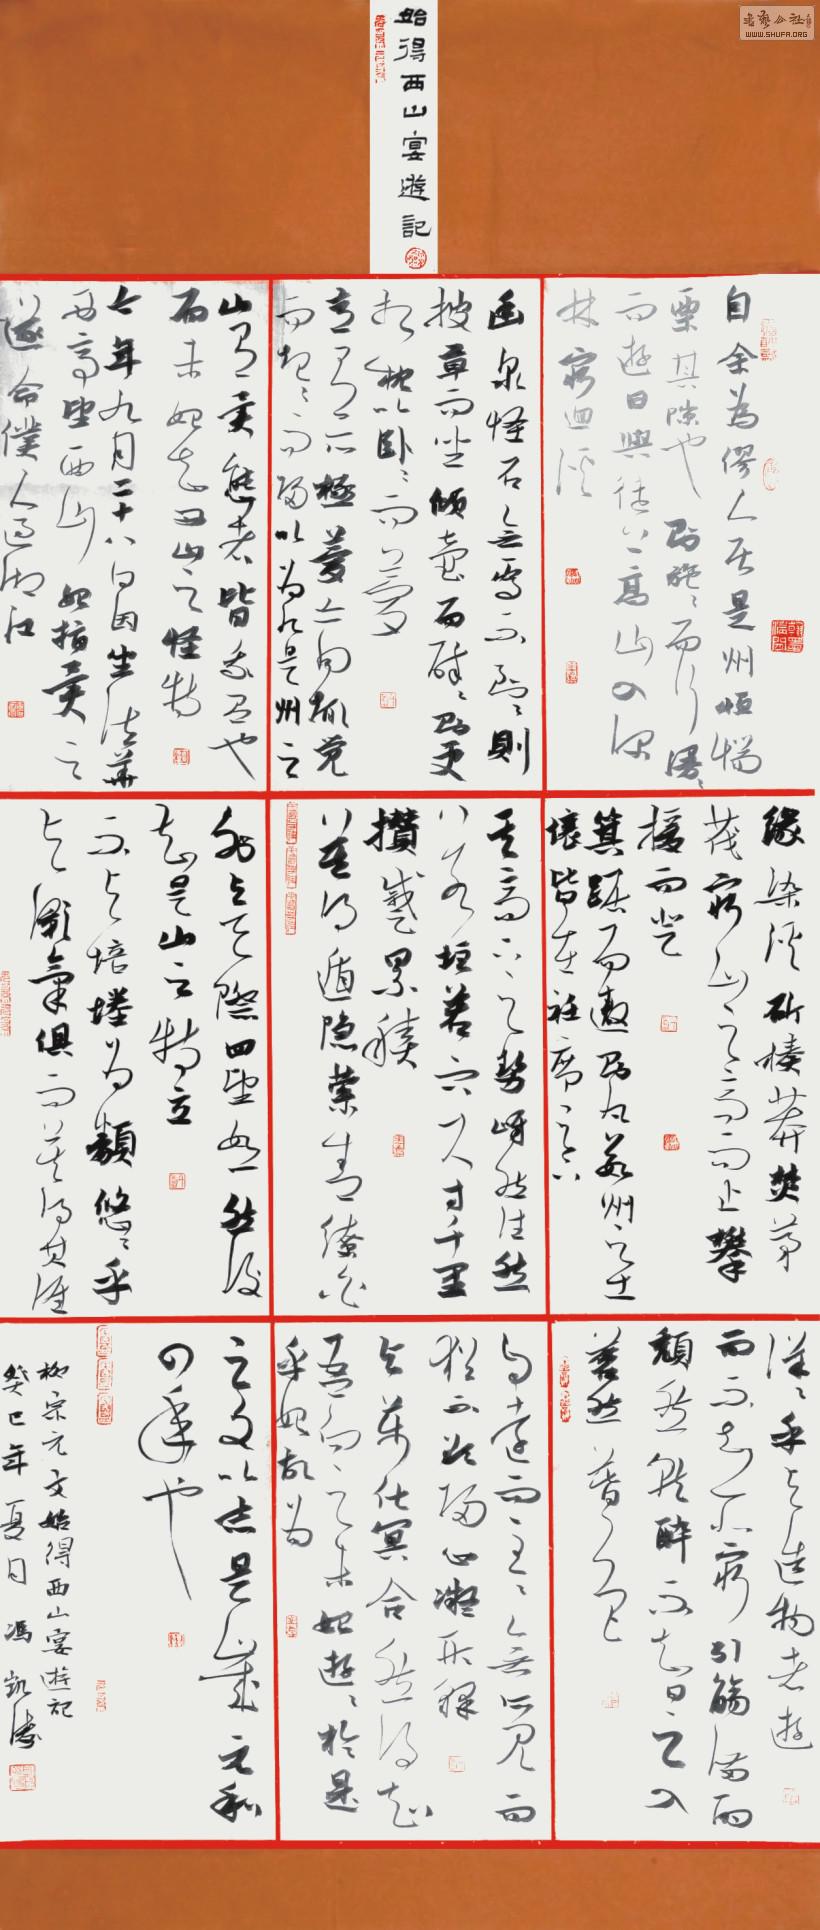 書藝公社
WWW.SHUFA.ORG
始得西山宴遊記
自余為僇人居是州恒惴
栗其隙也即施〻而行漫〻
而遊日與徒上高山入深
林窮迴溪
幽泉怪石無遠不到〻則
披草而坐傾壺而醉〻即更
相枕以臥〻而夢
意有所極夢亦同趣覺
而起〻而歸以為凡是州之
山有異態者皆我有也
而未始知西山之怪特
今年九月二十八日因坐法華
西亭望西山始指異之
遂命僕人過湘江
緣染溪斫榛莽焚茅
茷窮山之高而止攀
援而登
箕踞而遨即凡數州之土
壤皆在衽席之下
其高下之勢岈然洼然
若垤若穴尺寸千里
攢蹙累積
莫得遁隱縈青繚白
外與天際四望如一然後
知是山之特立
不與培塿為類悠〻乎
與顥氣俱而莫得其涯
洋〻乎與造物者遊
而不知其所窮引觴滿酌
頹然就醉不知日之入
蒼然暮色
自遠而至〻無所見而
猶不欲歸心凝形釋
與萬化冥合然後知
吾向之未始遊〻於是
乎始故為
之文以志是歲元和
四年也
柳宗元文始得西山宴遊記
癸巳年夏日 馮凱